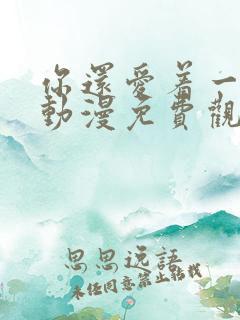 你還愛着一
動漫免費觀
思思逸語
未经同意禁止转载